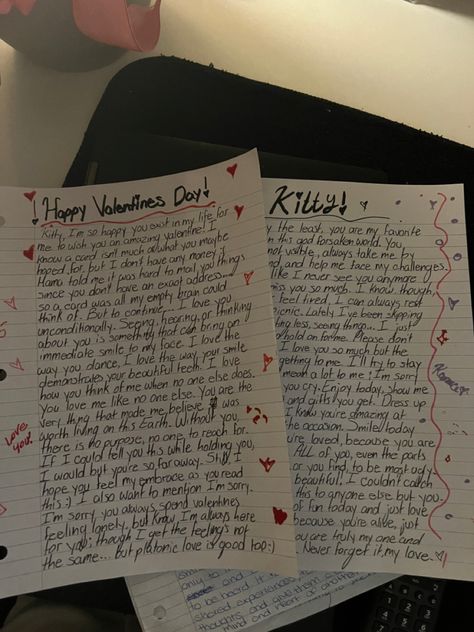 ! Happy Valentines Day!
Kitty, I'm so happy you exist in my life for
me to wish you an amazing valentine! I
know a card isn't much of what you maybe
hoped for, but I don't have any money &
Mama told me it was hard to mail you things
since you don't have an exact address...
so a card was all my empty brain could
think of. But to continue... I love you
unconditionally. Seeing, hearing, or thinking
about you is something that can bring an
immediate smile to my face. I love the
way you dance, I love the way your smile
demonstrates your beautiful teeth. I love
how you think of me when no one else does.
You love me like no one else. You are the
very thing that made me believe it was
worth living on this Earth. Without you,
there is no purpose, no one to reach for.
If I could tell you this while holding you,
I would but you're so far away. Still I
hope you feel my embrace as you read
this :) I also want to mention I'm sorry.
I'm sorry you always spend valentines
feeling lonely, but know I'm always here
for you; though I get the feelings not
the same... but platonic love is good too :)
Love
you!
Kitty!
y the least, you are my favorite
in this god forsaken world. You,
not visible, always take me by
nd, and help me face my challenges.
like I never see you anymore
miss you so much. I know, though,
feel tired, I can always rest
Lately I've been skipping
ting less, seeing things... I just
hold on for me. Please don't
I love you so much but the
getting to me. I'll try to stay
mean a lot to me! I'm sorry
you cry. Enjoy today, show me
and gifts you get. Dress up
I know you're amazing at
the occasion. Smile! today
you're loved, because you are
ALL of you, even the parts
or you find, to be most ugly
beautiful. I couldn't catch
this to anyone else but you
of fun today and just love
because you're alive, just
you are truly my one and
Never forget it, my love.
only to
and
to be heard
shared experiences,
thoughts, and give them
mind and heart of another